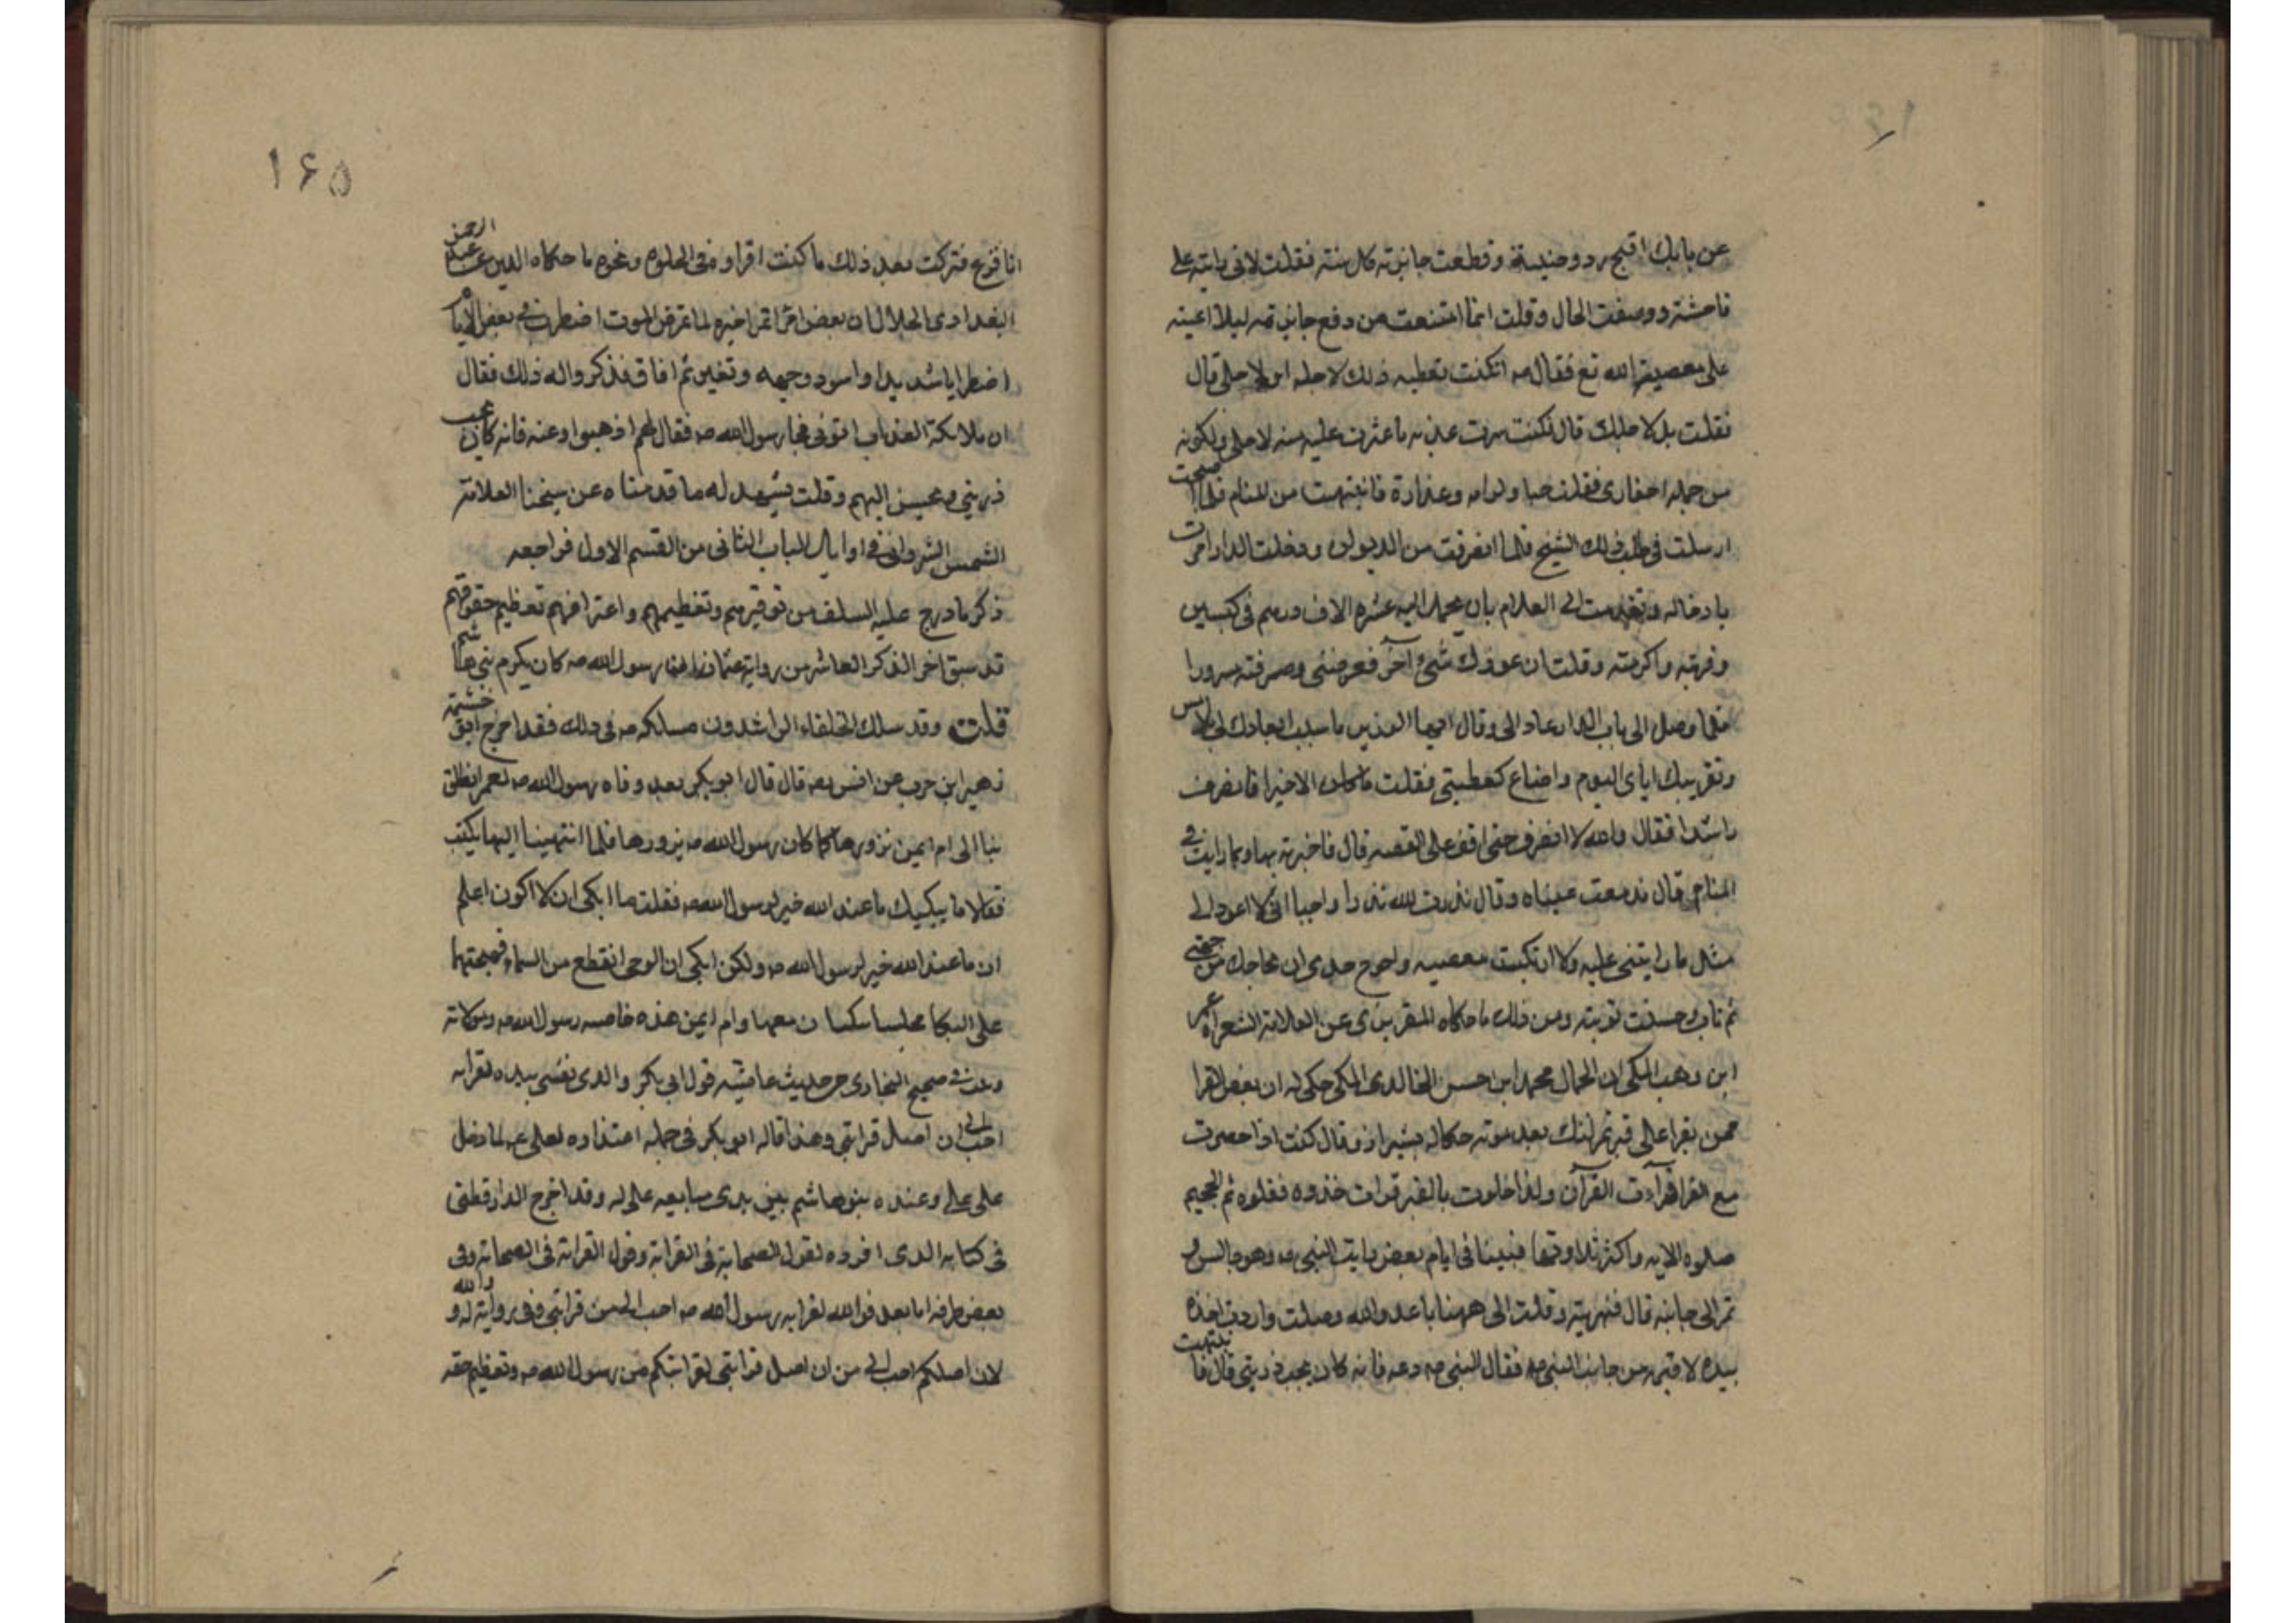 عن بابك اقبح رد وخيبته وقطعت جايزته كل سنته فقلت لانى رايته على
فاحشته ووصفت الحال وقلت انما امتنعت من دفع جايزته ليلا اعينه
على معصية الله تع فقال صه اتكنت تعطيه ذلك لاجله ام لاجلى قال
فقلت بل لاجلك قال فكنت سرت عليه ما عثرت عليه منه لاجلى ولكونه
من جمله احفادى فقلت حبا وكرامه وعزازة فانتبهت من المنام فلما اصبحت
ارسلت فى طلب ذلك الشيخ فلما انصرفت من الديوان ودخلت الدار امرت
بادخاله وتقدمت الى الغلام بان يحمل اليه عشرة الاف درهم فى كيسين
وقربته واكرمته وقلت ان عوزك شئ آخر فعرفنى وصرفته مسرورا
فلما وصل الى باب الدار عاد الى وقال ايها الوزير ما سبب ابعادك لى بالامس
وتقريبك اياى اليوم واضعاع كعطيتى فقلت ما كان الا خيرا فانصرف
راشدا فقال والله لا انصرف حتى اقف على القصه قال فاخبرته بها وبما رايت فى
المنام قال فدمعت عيناه وقال نذرت لله نذرا واجبا انى لا اعود الى
مثل ما رايتنى عليه ولا ارتكبت معصيه واحوج جدى ان يحاجك من جهتى
ثم تاب وحسنت توبته ومن ذلك ما حكاه المقريزى عن العلامة الشعراء عمر
ابن وهب المكى ان الجمال محمد ابن حسن الخالدى المكى حكى له ان بعض القرا
ممن يقرا على قبر تمرلنك بعد موته حكاله بشيراز وقال كنت اذا حضرت
مع القرا قرآت القرآن واذا خلوت بالقبر قرات خذوه فغلوه ثم الجحيم
صلوه الايه واكثر تلاوتها فبينا فى ايام بعض رايت النبى صه وهو جالس و
تمر الى جانبه قال فنهرته وقلت الى ههنا يا عدو الله وصلت واردت اخذه
بيده لاقيمه من جانب النبى صه فقال النبى صه دعه فانه كان يحب ذريتى قال فانتبهت
١۶۵
انا فزع فتركت بعد ذلك ما كنت اقراوه فى الخلوه ونحوه ما حكاه الدين عبد الرحمن
البغدادى الحلال ان بعض امرا تمر اخبره لما تمرض الموت اضطرب فى بعض الايام
اضطرابا شديدا واسود وجهه وتغير ثم افاق فذكروا له ذلك فقال
ان ملائكة العذاب اتونى فجا رسول الله صه فقال لهم اذهبوا عنه فانه كان يحب
ذريتى ويحسن اليهم وقلت يشهد له ما قدمناه عن شيخنا العلامة
الشمس الشروانى فى اوايل الباب الثانى من القسم الاول فراجعه
ذكر ما درج عليه السلف من توقيرهم وتعظيمهم واعترافهم تعظيم حقوقهم
قد سبق اخر الذكر العاشر من رواية عثمان رسول الله صه كان يكرم بنى هاشم
قلت وقد سلك الخلفاء الراشدون مسلكه صه فى ذلك فقد اخرج ابن خيثمه
زهير ابن حرب عن انس رضه قال قال ابو بكر بعد وفاه رسول الله صه لعمر انطلق
بنا الى ام ايمن نزورها كما كان رسول الله صه يزورها فلما انتهينا اليها بكيت
فقالا ما يبكيك ما عند الله خير لرسول الله صه فقلت ما ابكى ان لا اكون اعلم
ان ما عند الله خير لرسول الله صه ولكن ابكى ان الوحى انقطع من السماء فهيجتهما
على البكا فجلسا يبكيان معها وام ايمن هذه خادمه رسول الله صه ومولاته
وعن فى صحيح البخارى من حديث عايشه قول ابى بكر والذى نفسى بيده لقرابه
احب الى ان اصل قرابتى وهذا قاله ابو بكر فى جمله اعتذاره لعلى ع لما دخل
على على وعنده بنو هاشم بين يدى مبايعه على له وقد اخرج الدارقطنى
فى كتابه الذى افرده لقول الصحابة فى القرابة وقول القرابة فى الصحابة وفى
بعض طرقه اما بعد فوالله لقرابه رسول الله صه احب الى من قرابتى وفى رواية له والله
لان اصلكم احب الى من ان اصل قرابتى لقرابتكم من رسول الله صه وتعظيم حقه